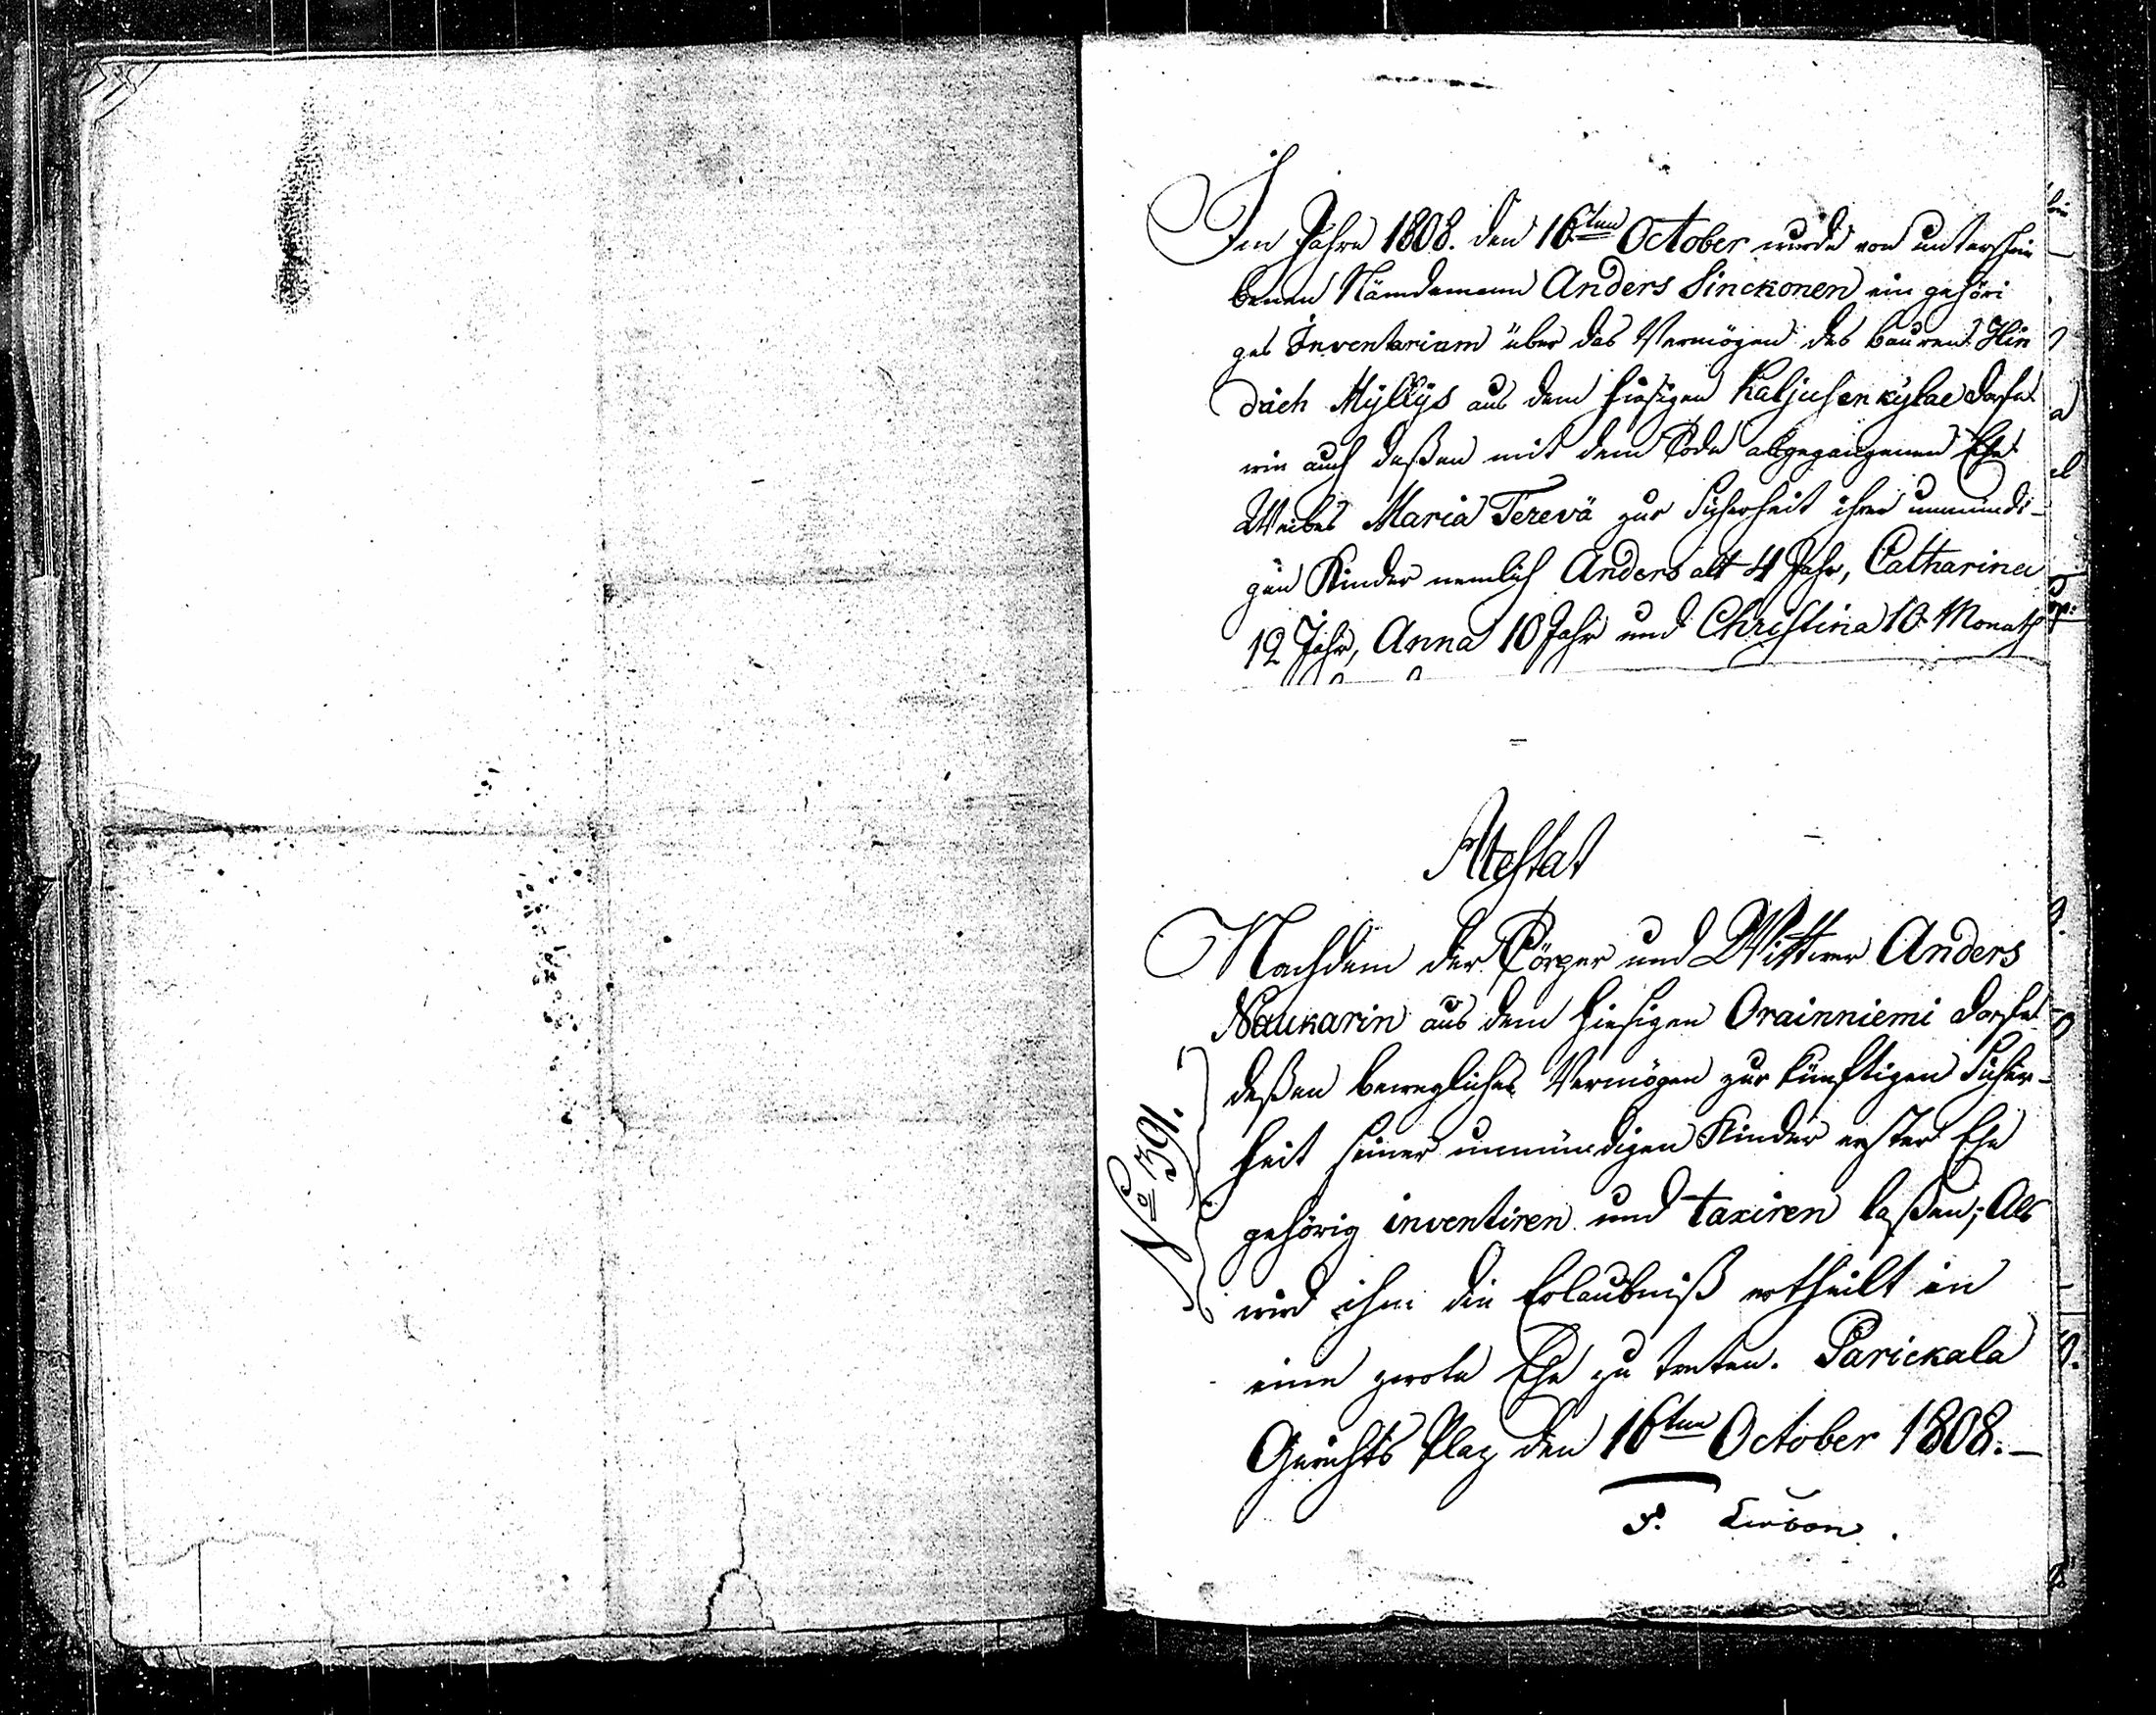 Im Jahre 1808. den 16ten October wurde von unterschrie
benen Nämdemann Anders Sinckonen ein gehöri
ges Inventarium über das Vermögen des Bauren Hin
drich Myllys aus dem hiesigen Kaljusenkylae Dorfe
wie auch deßen mit dem Tode abgegangenen Ehe
Weibes Maria Terevä zur Sicherheit ihrer unmündi-
gen Kinder nemlich Anders alt 4 Jahr, Catharina
12 Jahr, Anna 10 Jahr und Christina 10 Monath
Attestat
Nachdem der Törper und Wittwer Anders
Naukarin aus dem hiesigen Orainniemi Dorfe
deßen bewegliches Vermögen zur künftigen Sicher-
heit seiner unmündigen Kinder erster Ehe
gehörig inventiren und taxiren laßen; Als
wird ihm die Erlaubniß ertheilt in
eine zwote Ehe zu treten. Parickala
Gerichts Plaz den 16ten October 1808.-
No 391.